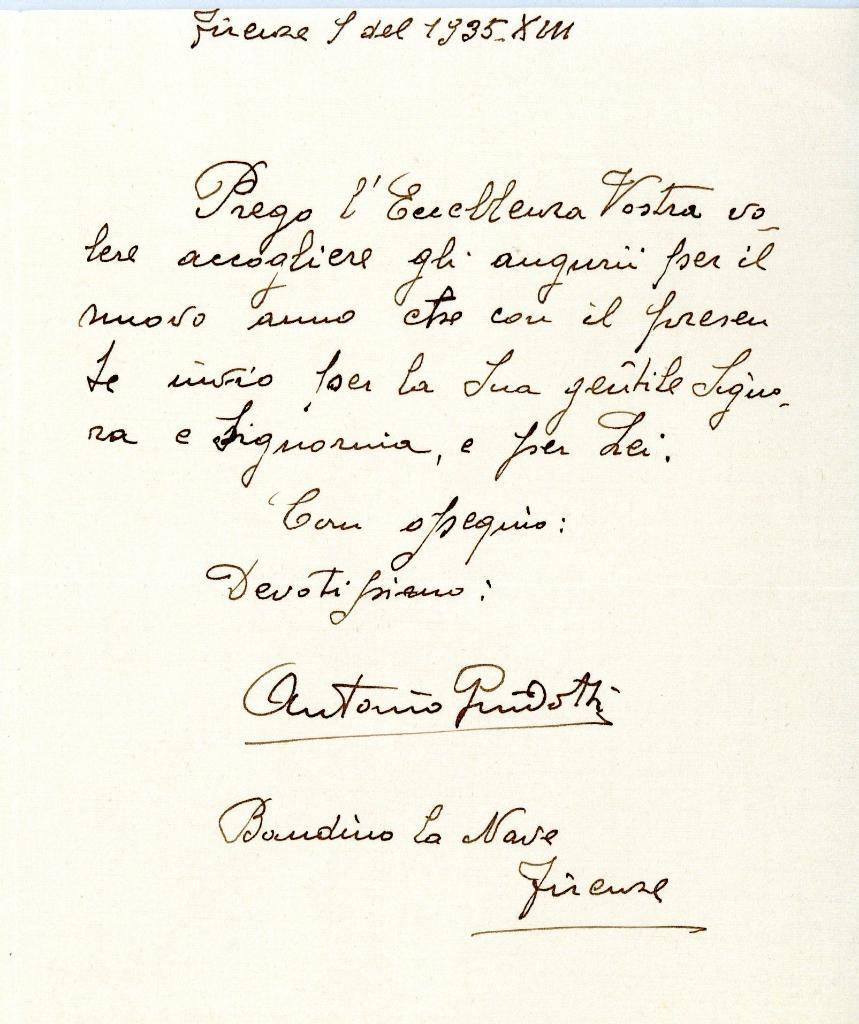 Firenze 1 del 1935-XIII
Prego l'Eccellenza Vostra vo-
lere accogliere gli augurii per il
nuovo anno che con il presen
te invio per la Sua gentile Signo-
ra e Signorina, e per Lei.
Con ossequio:
Devotissimo:
Antonio Guidotti
Bandino la Nave
Firenze